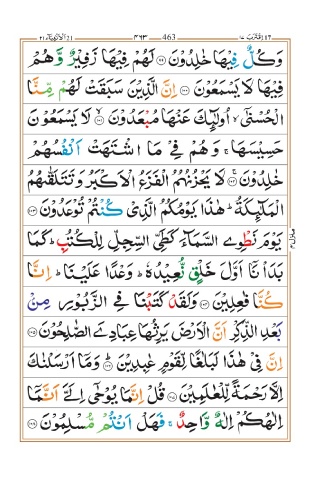 اقترب ١٧ 463 ۴۶۳ الانبیآء ٢١
وَكُلٌّ فِيْهَا خٰلِدُوْنَ ﴿۹۹﴾ لَهُمْ فِيْهَا زَفِيْرٌ وَّهُمْ
فِيْهَا لَا يَسْمَعُوْنَ ﴿۱۰۰﴾ اِنَّ الَّذِيْنَ سَبَقَتْ لَهُمْ مِّنَّا
الْحُسْنٰۤىۙ اُولٰٓئِكَ عَنْهَا مُبْعَدُوْنَ ﴿۱۰۱﴾ لَا يَسْمَعُوْنَ
حَسِيْسَهَاۚ وَهُمْ فِيْ مَا اشْتَهَتْ اَنْفُسُهُمْ
خٰلِدُوْنَ ﴿۱۰۲﴾ لَا يَحْزُنُهُمُ الْفَزَعُ الْاَكْبَرُ وَتَتَلَقّٰىهُمُ
الْمَلٰٓئِكَةُؕ هٰذَا يَوْمُكُمُ الَّذِيْ كُنْتُمْ تُوْعَدُوْنَ ﴿۱۰۳﴾
يَوْمَ نَطْوِي السَّمَآءَ كَطَيِّ السِّجِلِّ لِلْكُتُبِؕ كَمَا
بَدَاْنَاۤ اَوَّلَ خَلْقٍ نُّعِيْدُهٗؕ وَعْدًا عَلَيْنَاؕ اِنَّا
كُنَّا فٰعِلِيْنَ ﴿۱۰۴﴾ وَلَقَدْ كَتَبْنَا فِي الزَّبُوْرِ مِنْۢ
بَعْدِ الذِّكْرِ اَنَّ الْاَرْضَ يَرِثُهَا عِبَادِيَ الصّٰلِحُوْنَ ﴿۱۰۵﴾
اِنَّ فِيْ هٰذَا لَبَلٰغًا لِّقَوْمٍ عٰبِدِيْنَ ﴿۱۰۶﴾ وَمَاۤ اَرْسَلْنٰكَ
اِلَّا رَحْمَةً لِّلْعٰلَمِيْنَ ﴿۱۰۷﴾ قُلْ اِنَّمَا يُوْحٰۤى اِلَيَّ اَنَّمَاۤ
اِلٰهُكُمْ اِلٰهٌ وَّاحِدٌۚ فَهَلْ اَنْتُمْ مُّسْلِمُوْنَ ﴿۱۰۸﴾
منزل ۴